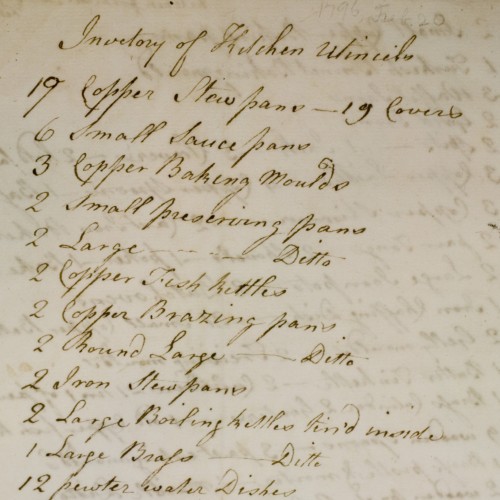 1796 Feb 20
Invetory of Kitchen Utincils
19 Copper Stewpans — 19 Covers
6 Small Sauce pans
3 Copper Baking Moulds
2 Small preserving pans
2 Large - - - - Ditto
2 Copper Fish kettles
2 Copper Brazing pans
2 Round Large — Ditto
2 Iron Stewpans
2 Large Boiling kettles tin'd inside
1 Large Brass — Ditto
12 pewter water Dishes